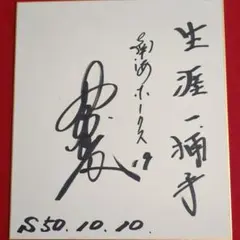 生涯一捕手
南海ホークス
19
S50.10.10.